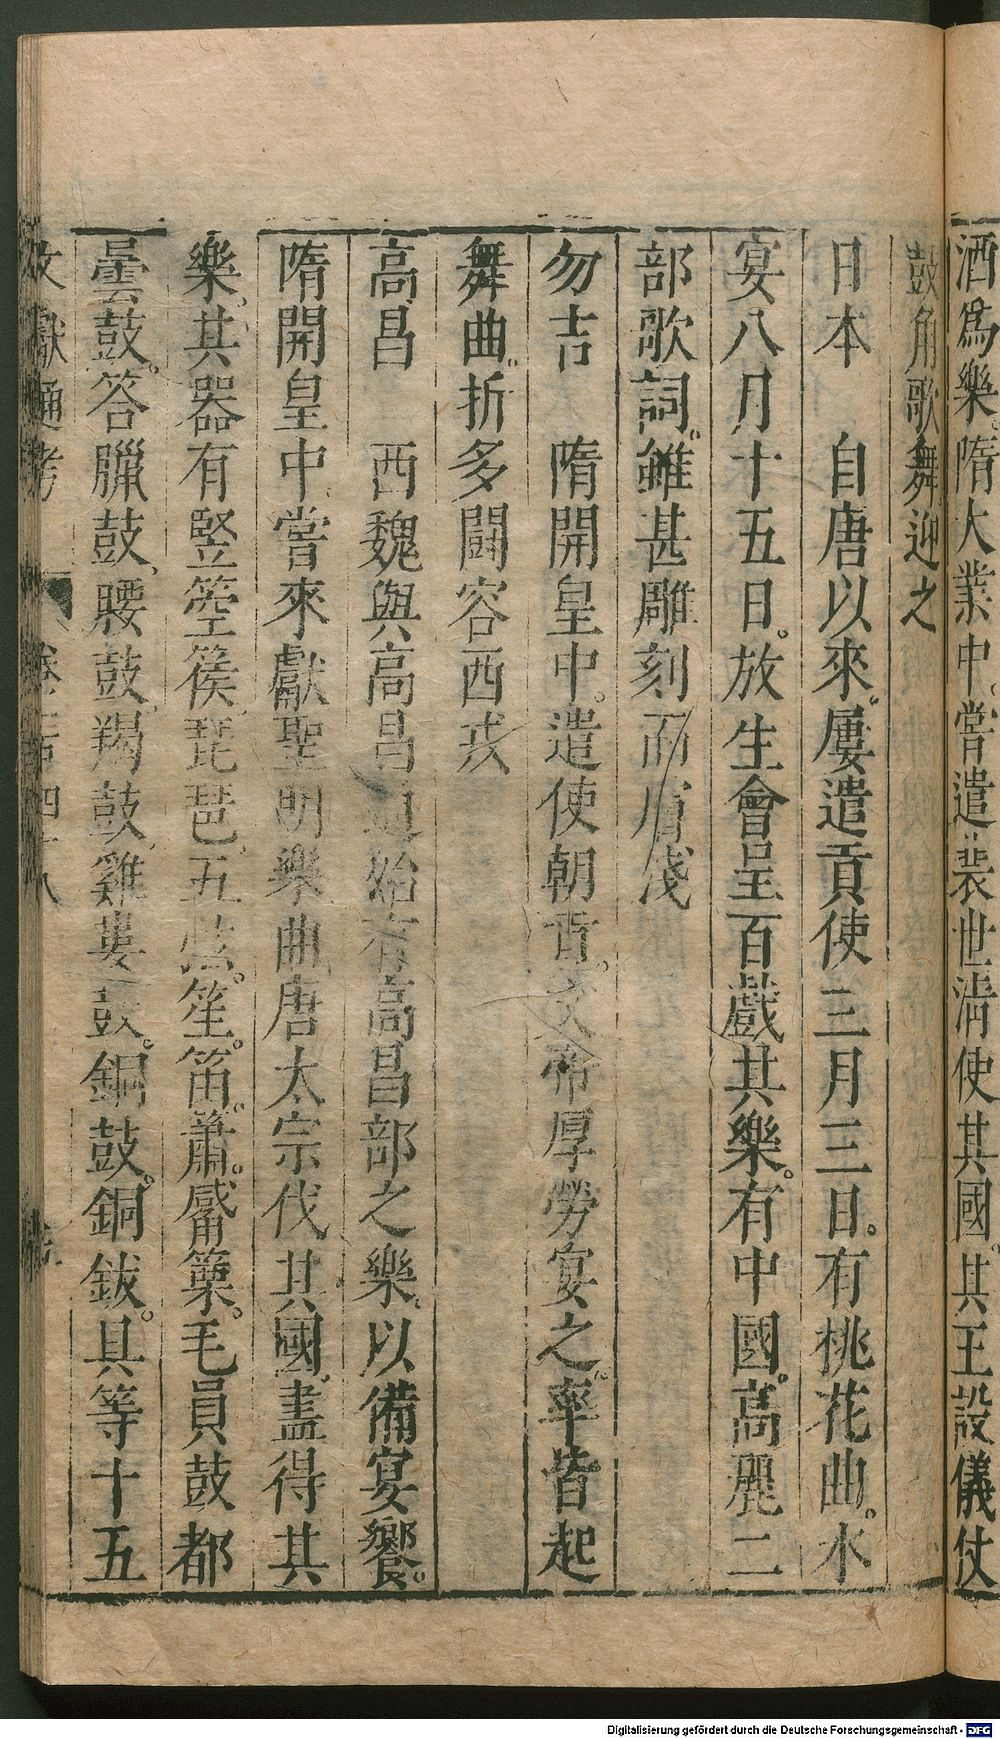 酒爲樂。隋大業中。嘗遣裴世淸使其國。其王設儀仗
鼓角歌舞迎之
日本　自唐以來。屢遣貢使三月三日。有桃花曲。水
宴八月十五日。放生會呈百戲其樂。有中國。高麗二
部歌詞。雖甚雕刻而膚淺
勿吉　隋開皇中。遣使朝貢。文帝厚勞宴之。率皆起
舞曲。折多闘容西戎
高昌　西魏與高昌通始有高昌部之樂。以備宴饗。
隋開皇中嘗來獻聖明樂曲唐太宗伐其國。盡得其
樂。其器有竪箜篌。琵琶。五絃。笙。笛。簫。觱篥。毛員鼓都
曇鼓。答臘鼓。腰鼓。羯鼓。雞婁鼓。銅鼓。銅鈸。具等十五
文獻通考　卷一百四十八
Digitalisierung gefördert durch die Deutsche Forschungsgemeinschaft - DFG